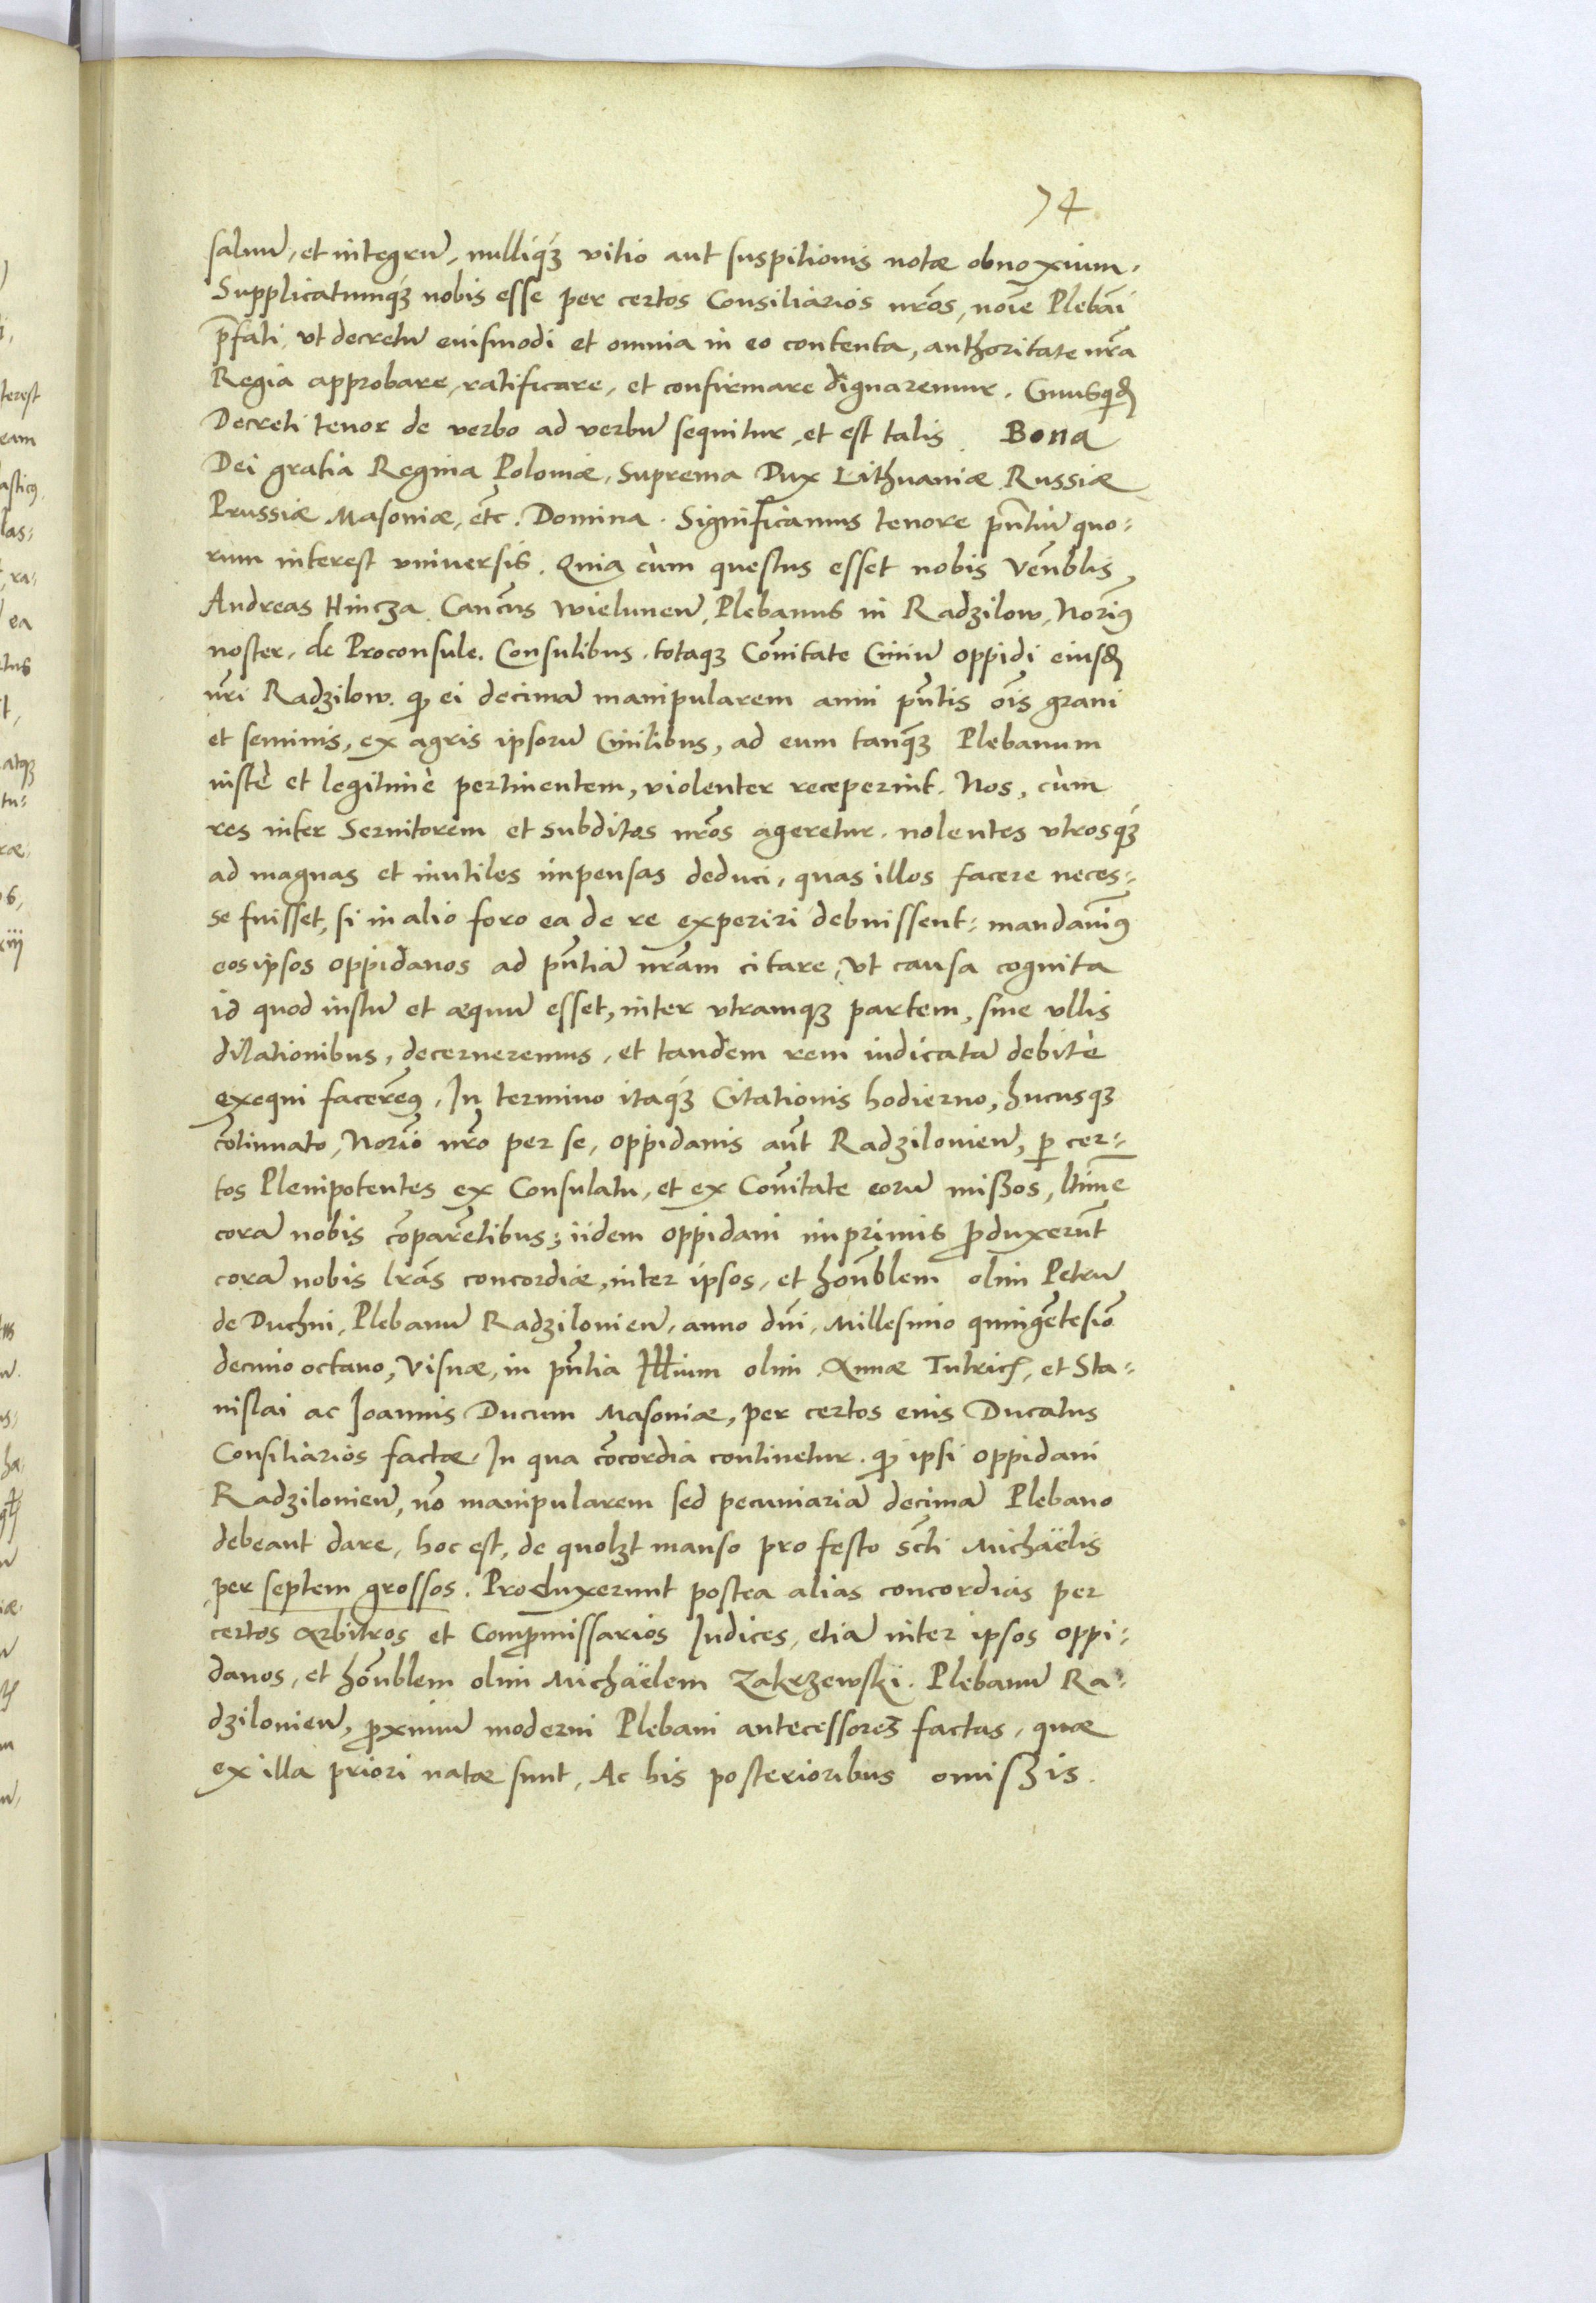 74
saluū, et integrū, nulliq́ꝫ vitio aut suspitionis notæ obnoxium.
Supplicatumq́ꝫ nobis esse per certos Consiliarios nr̄os, noīe Plebāi
p̄fati, vt decretū euismodi et omnia in eo contenta, authoritate nr̄a
Regia approbare, ratificare, et confirmare dignaremur. Cuiusq̄dē
Decreti tenor de verbo ad verbū sequitur, et est talis. Bona
Dei gratia Regina Poloniæ, Suprema Dux Lithuaniæ Russiæ
Prussiæ Masoniæ, etc̄. Domina. Significamus tenore pn̄tiū quo:
rum interest vniuersis. Quia cùm questus esset nobis Ven̄blis,
Andreas Hincza Can̄cus Wielunēn, Plebanus in Radzilow, Nori9̄
noster, de Proconsule. Consulibus. totaqꝫ Com̄itate Ciuiū oppidi eiusdē
nr̄i Radzilow. ꝙ ei decimā manipularem anni pn̄tis oīs grani
et seminis, ex agris ipsorū Ciuilibus, ad eum tanq̄ꝫ Plebanum
iustè et legitimè pertinentem, violenter receperint. Nos, cùm
res inter Seruitorem et subditos nr̄os ageretur. nolentes vtrosq́ꝫ
ad magnas et inutiles impensas deduci, quas illos facere neces:
se fuisset, si in alio foro ea de re experiri debuissent: mandauim9
eos ipsos oppidanos ad pn̄tiā nr̄am citare, vt causa cognita
id quod iustū et æquū esset, inter vtramqꝫ partem, sine vllis
dilationibus, decerneremus, et tandem rem iudicatā debitè
exequi facerem9. In termino itaq́ꝫ Citationis hodierno, hucusqꝫ
cōtinuato, Norio nr̄o per se, oppidanis aūt Radziloniēn, ꝑ cer:
tos Plenipotentes ex Consulatu, et ex Com̄itate eorū mißos, ltīme
corā nobis cōparētibus; iidem oppidani imprimis ꝓduxerūt
corā nobis lrā̄s concordiæ, inter ipsos, et hon̄blem olim Petrū
de Duchni, Plebanū Radziloniēn, anno dn̄i, Millesimo quingētesīo
decimo octauo, Visnæ, in pn̄tia Illlium olim Annæ Tutricis, et Sta:
nislai ac Joannis Ducum Masoniæ, per certos euis Ducatus
Consiliarios factæ. In qua cōcordia continetur. ꝙ ipsi oppidani
Radziloniēn, nō manipularem sed pecuniariā decimā Plebano
debeant dare, hoc est, de quolꝫt manso pro festo Sc̄ti Michaëlis
per septem grossos. Produxerunt postea alias concordias per
certos Arbitros et Comꝓmissarios Judices, etiā inter ipsos oppi:
danos, et hon̄blem olim Michaëlem Zakrzewski. Plebanū Ra:
dziloniēn, ꝓximū moderni Plebani antecessorē factas, quæ
ex illa priori natæ sunt, Ac his posterioribus omißis.